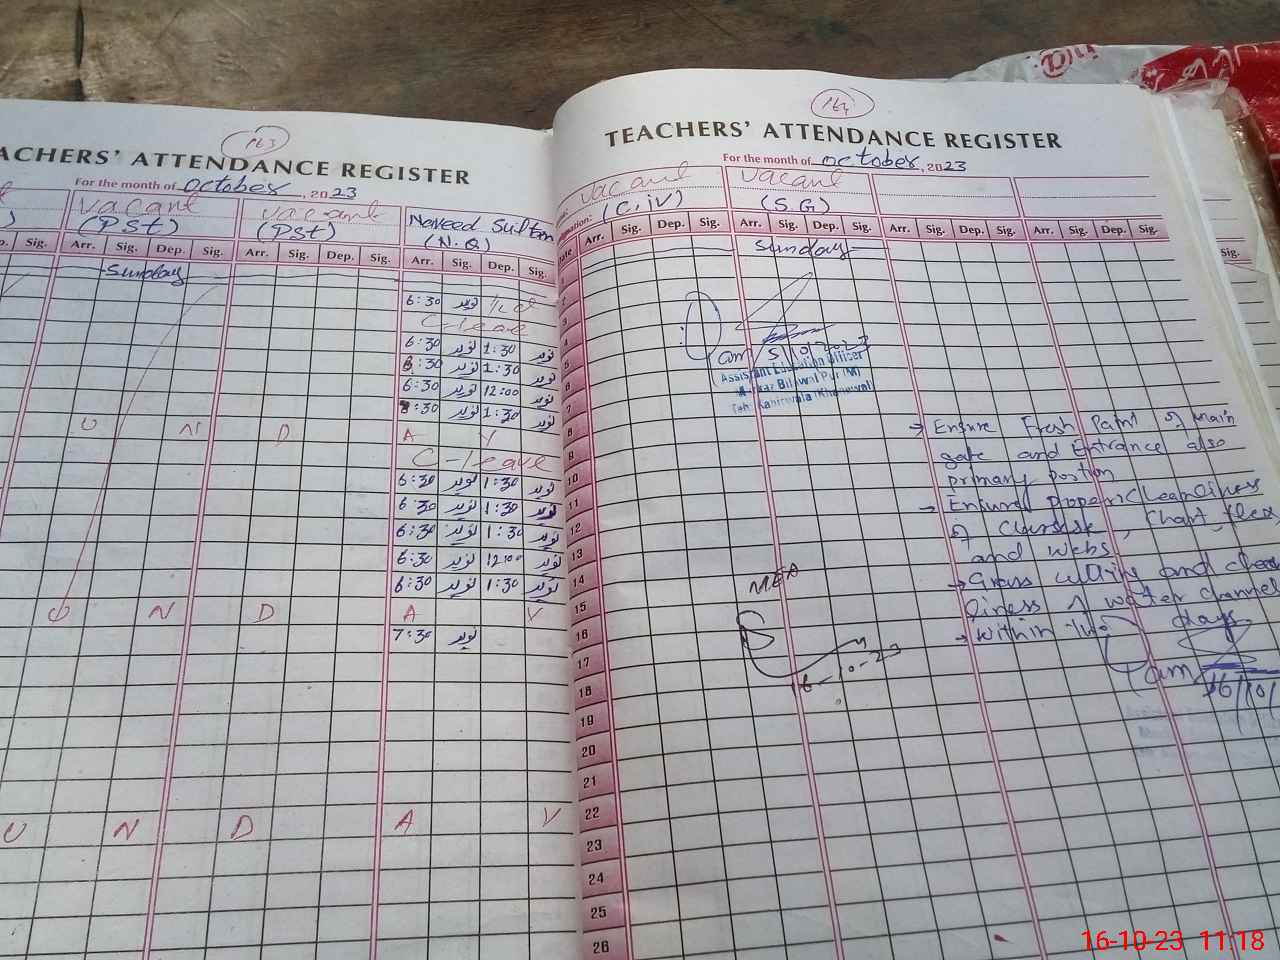 163
TEACHERS' ATTENDANCE REGISTER
For the month of October, 2023
vacant vacant Naveed Sultan
(PSt) (PSt) (N.Q)
Arr. Sig. Dep. Sig. Arr. Sig. Dep. Sig. Arr. Sig. Dep. Sig.
Sunday
6:30 نوید
C-leave
6:30 نوید 1:30 نوید
6:30 نوید 1:30 نوید
6:30 نوید 12:00 نوید
6:30 نوید 1:30 نوید
U N D A Y
C-leave
6:30 نوید 1:30 نوید
6:30 نوید 1:30 نوید
6:30 نوید 1:30 نوید
6:30 نوید 12:00 نوید
6:30 نوید 1:30 نوید
N D A Y
7:30 نوید
U N D A Y
164
TEACHERS' ATTENDANCE REGISTER
For the month of October, 2023
vacant vacant
(C.iV) (S.G)
Date Arr. Sig. Dep. Sig. Arr. Sig. Dep. Sig. Arr. Sig. Dep. Sig. Arr. Sig. Dep. Sig.
1 Sunday
2
3
4
5
6
7
8
9
10
11
12
13
14
15
16
17
18
19
20
21
22
23
24
25
26
5/10/2023
Assistant Education Officer
Bilawal Pur (M)
Teh. Kabirwala (Khanewal)
→ Ensure Fresh Paint of main
gate and Entrance also
primary portion
→ Ensure proper cleanliness
of Chart, flex
and webs
→ Grass cutting and
liness of water channel
→ Within two days
16/10/
MEA
16-10-23
16-10-23 11:18